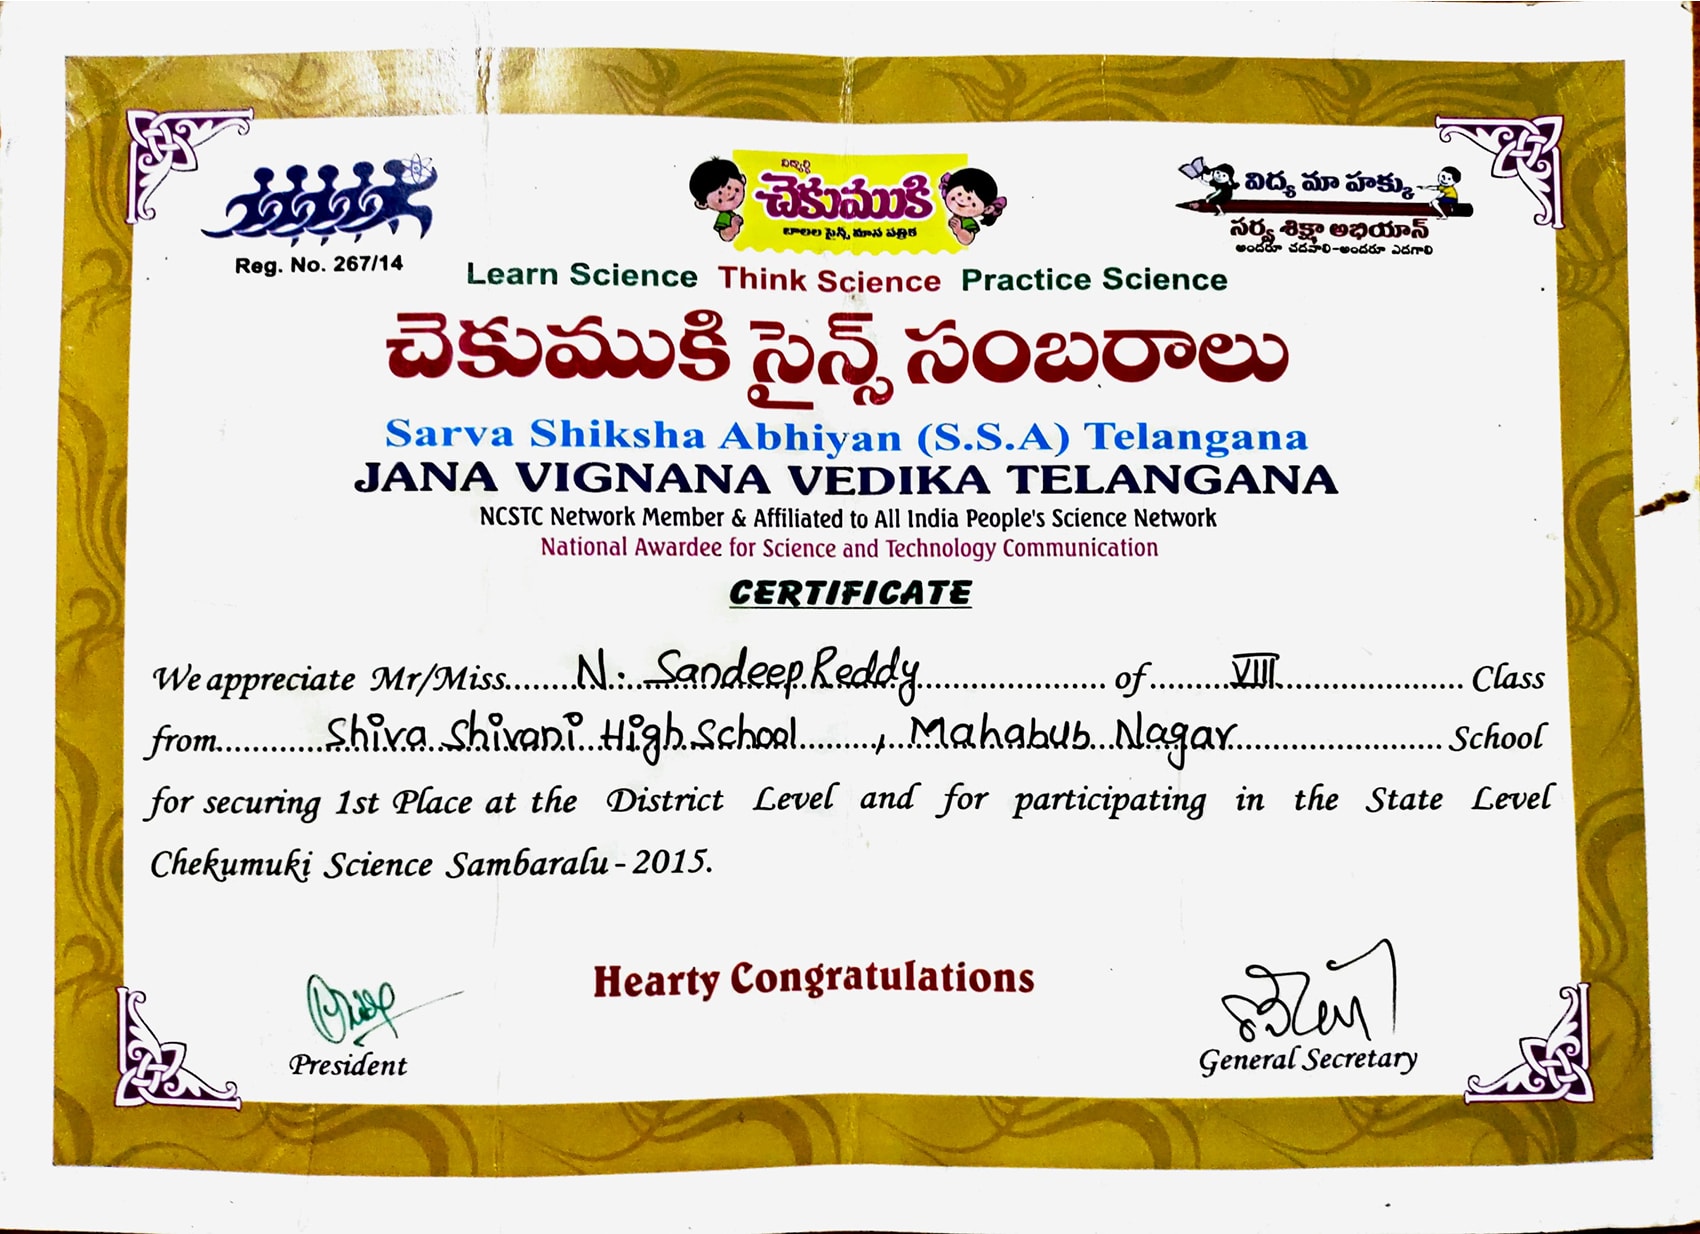 విద్యార్థి
చెకుముకి
బాలల సైన్స్ మాస పత్రిక
విద్య మా హక్కు
సర్వ శిక్షా అభియాన్
అందరూ చదవాలి-అందరూ ఎదగాలి
Reg. No. 267/14
Learn Science Think Science Practice Science
చెకుముకి సైన్స్ సంబరాలు
Sarva Shiksha Abhiyan (S.S.A) Telangana
JANA VIGNANA VEDIKA TELANGANA
NCSTC Network Member & Affiliated to All India People's Science Network
National Awardee for Science and Technology Communication
CERTIFICATE
We appreciate Mr/Miss.......N. Sandeep Reddy....................... of.........VIII....................... Class
from............Shiva Shivani High School........., Mahabub Nagar......................... School
for securing 1st Place at the District Level and for participating in the State Level
Chekumuki Science Sambaralu - 2015.
Hearty Congratulations
President
General Secretary